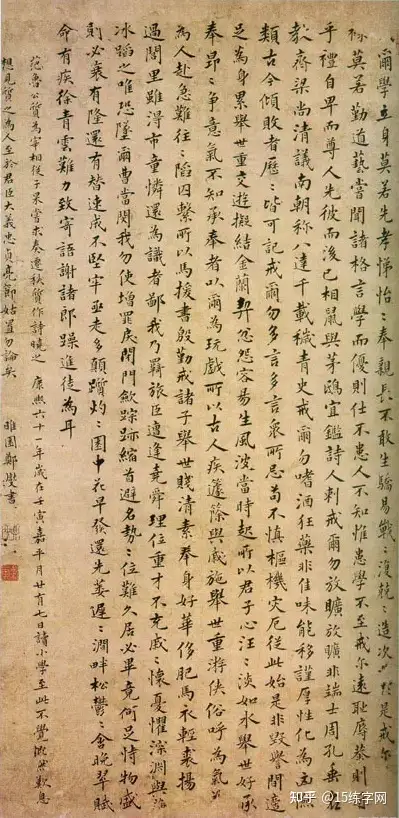 爾學立身莫若先孝悌怡〻奉親長不敢生驕易戰〻復兢〻造次必於是戒爾
祿莫若勤道藝嘗聞諸格言學而優則仕不患人不知惟患學不至戒尔遠恥辱恭則
乎禮自卑而尊人先彼而後已相鼠與茅鴟宜鑑詩人刺戒爾勿放曠放曠非端士周孔垂名
教齊梁尚清議南朝称八達千載穢青史戒爾勿嗜酒狂藥非佳味能移謹厚性化為凶險
類古今傾敗者歷〻皆可記戒爾勿多言多言衆所忌苟不慎樞機灾厄從此始是非毀譽間適
足為身累舉世重交遊擬結金蘭契忿怨容易生風波當時起所以君子心汪〻淡如水舉世好承
奉昂〻争意氣不知承奉者以爾為玩戲所以古人疾籧篨與戚施舉世重游俠俗呼為氣義
為人赴急難往〻陷囚繫所以馬援書殷勤戒諸子舉世賤清素奉身好華侈肥馬衣輕裘揚〻
過閭里雖得市童憐還為識者鄙我乃羈旅臣遭逢堯舜理位重才不充戚〻懷憂懼深淵與薄
冰蹈之唯恐墜爾曹當閔我勿使增罪戾閉門斂踪跡縮首避名勢〻位難久居必畢竟何足恃物盛
則必衰有隆還有替速成不堅牢亟走多顛躓灼〻園中花早發還先萎遲〻澗畔松鬱〻含晚翠賦
命有疾徐青雲難力致寄語謝諸郎躁進徒為耳
范魯公質為宰相從子杲嘗求奏遷秩質作詩曉之 康熙六十一年歲在壬寅嘉平月廿有七日讀小學至此不覺慨然歎息
想見質之為人至於君臣大義忠貞亮節姑置勿論矣 雎園鄭燮書
知乎 @15练字网